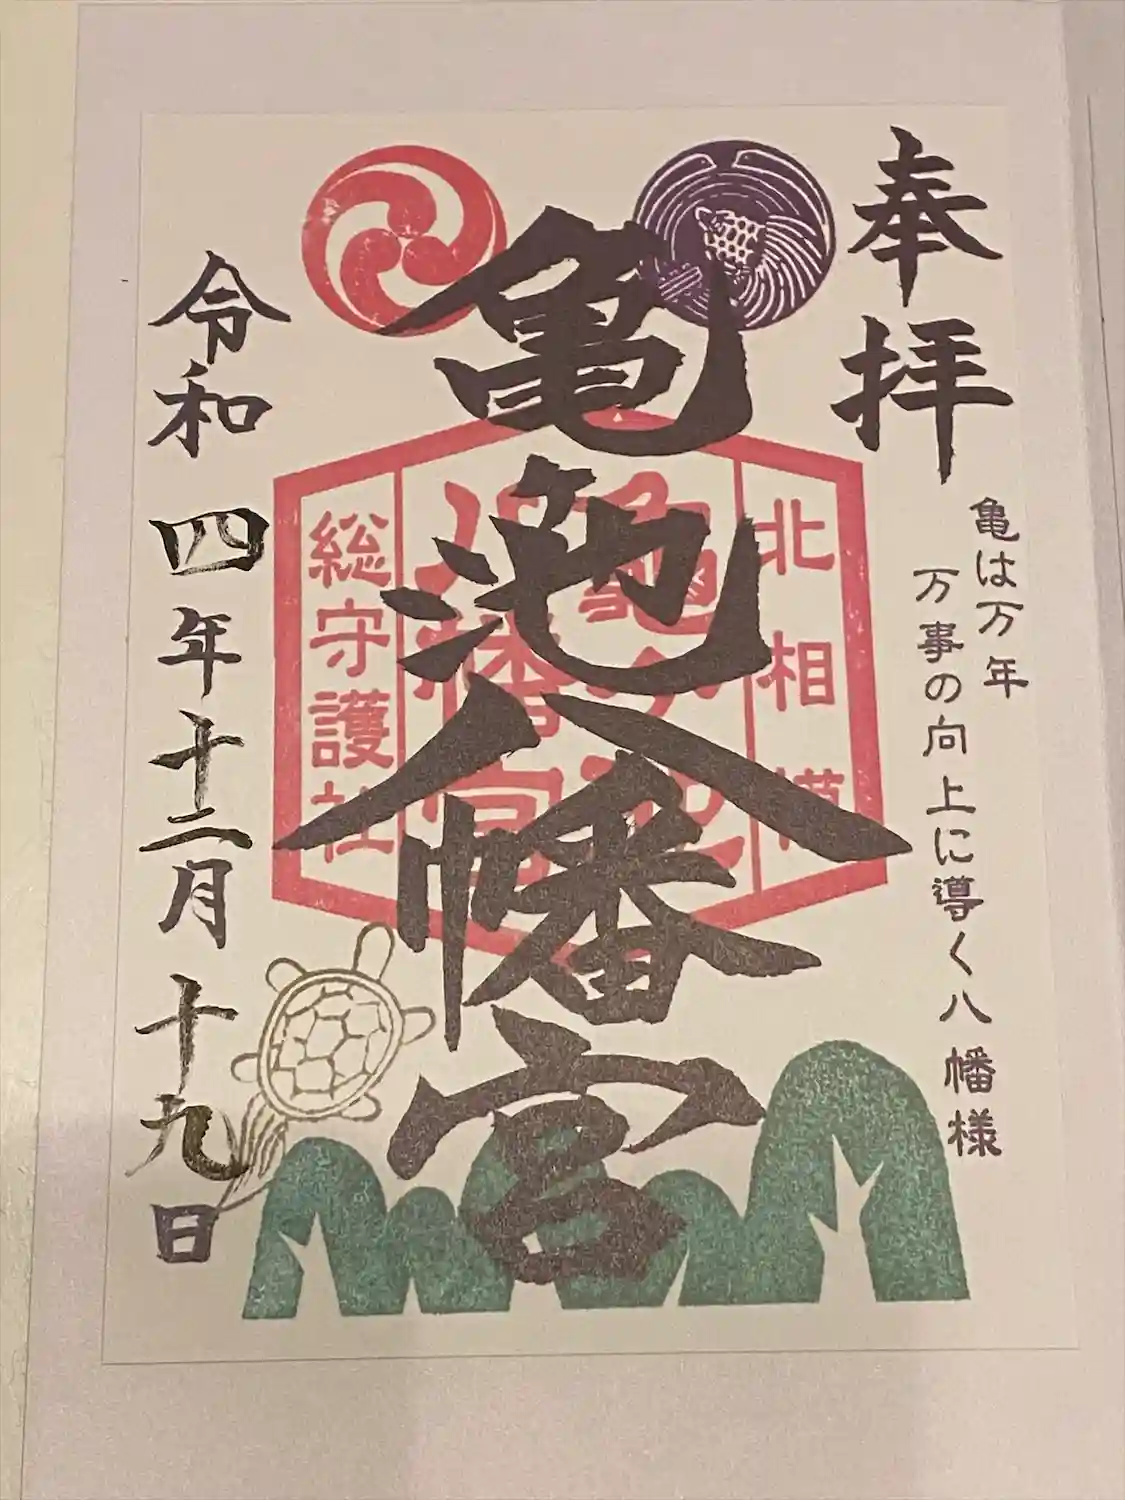 奉拝
亀は万年
万事の向上に導く八幡様
亀池八幡宮
北相模
亀ノ池
八幡宮
総守護社
令和四年十二月十九日